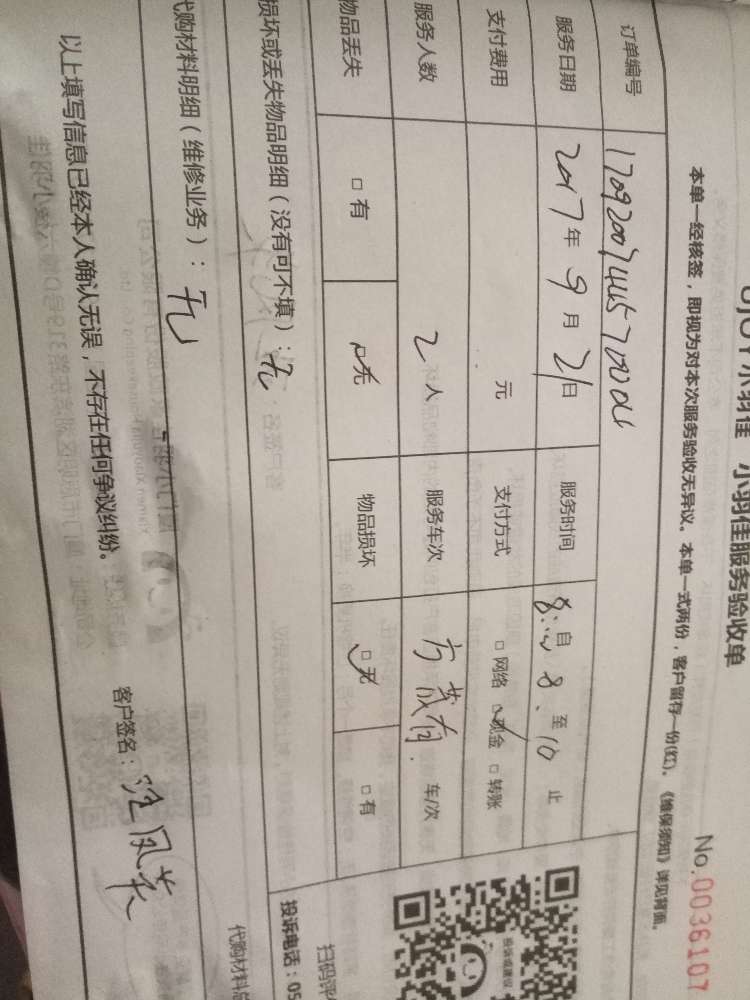 小羽佳 小羽佳服务验收单
No.0036107
本单一经核签，即视为对本次服务验收无异议。本单一式两份，客户留存一份(红)。《维保须知》详见背面。
订单编号
服务日期 2017年9月21日 服务时间 自 至 止
支付费用 元 支付方式 □ 网络 ☑ 现金 □ 转账
服务人数 2人 服务车次 车/次
物品丢失 □ 有 ☑ 无 物品损坏 ☑ 无 □ 有
损坏或丢失物品明细（没有可不填）：无
代购材料明细（维修业务）：无
以上填写信息已经本人确认无误，不存在任何争议纠纷。
客户签名：
扫码评
投诉电话：05
代购材料总